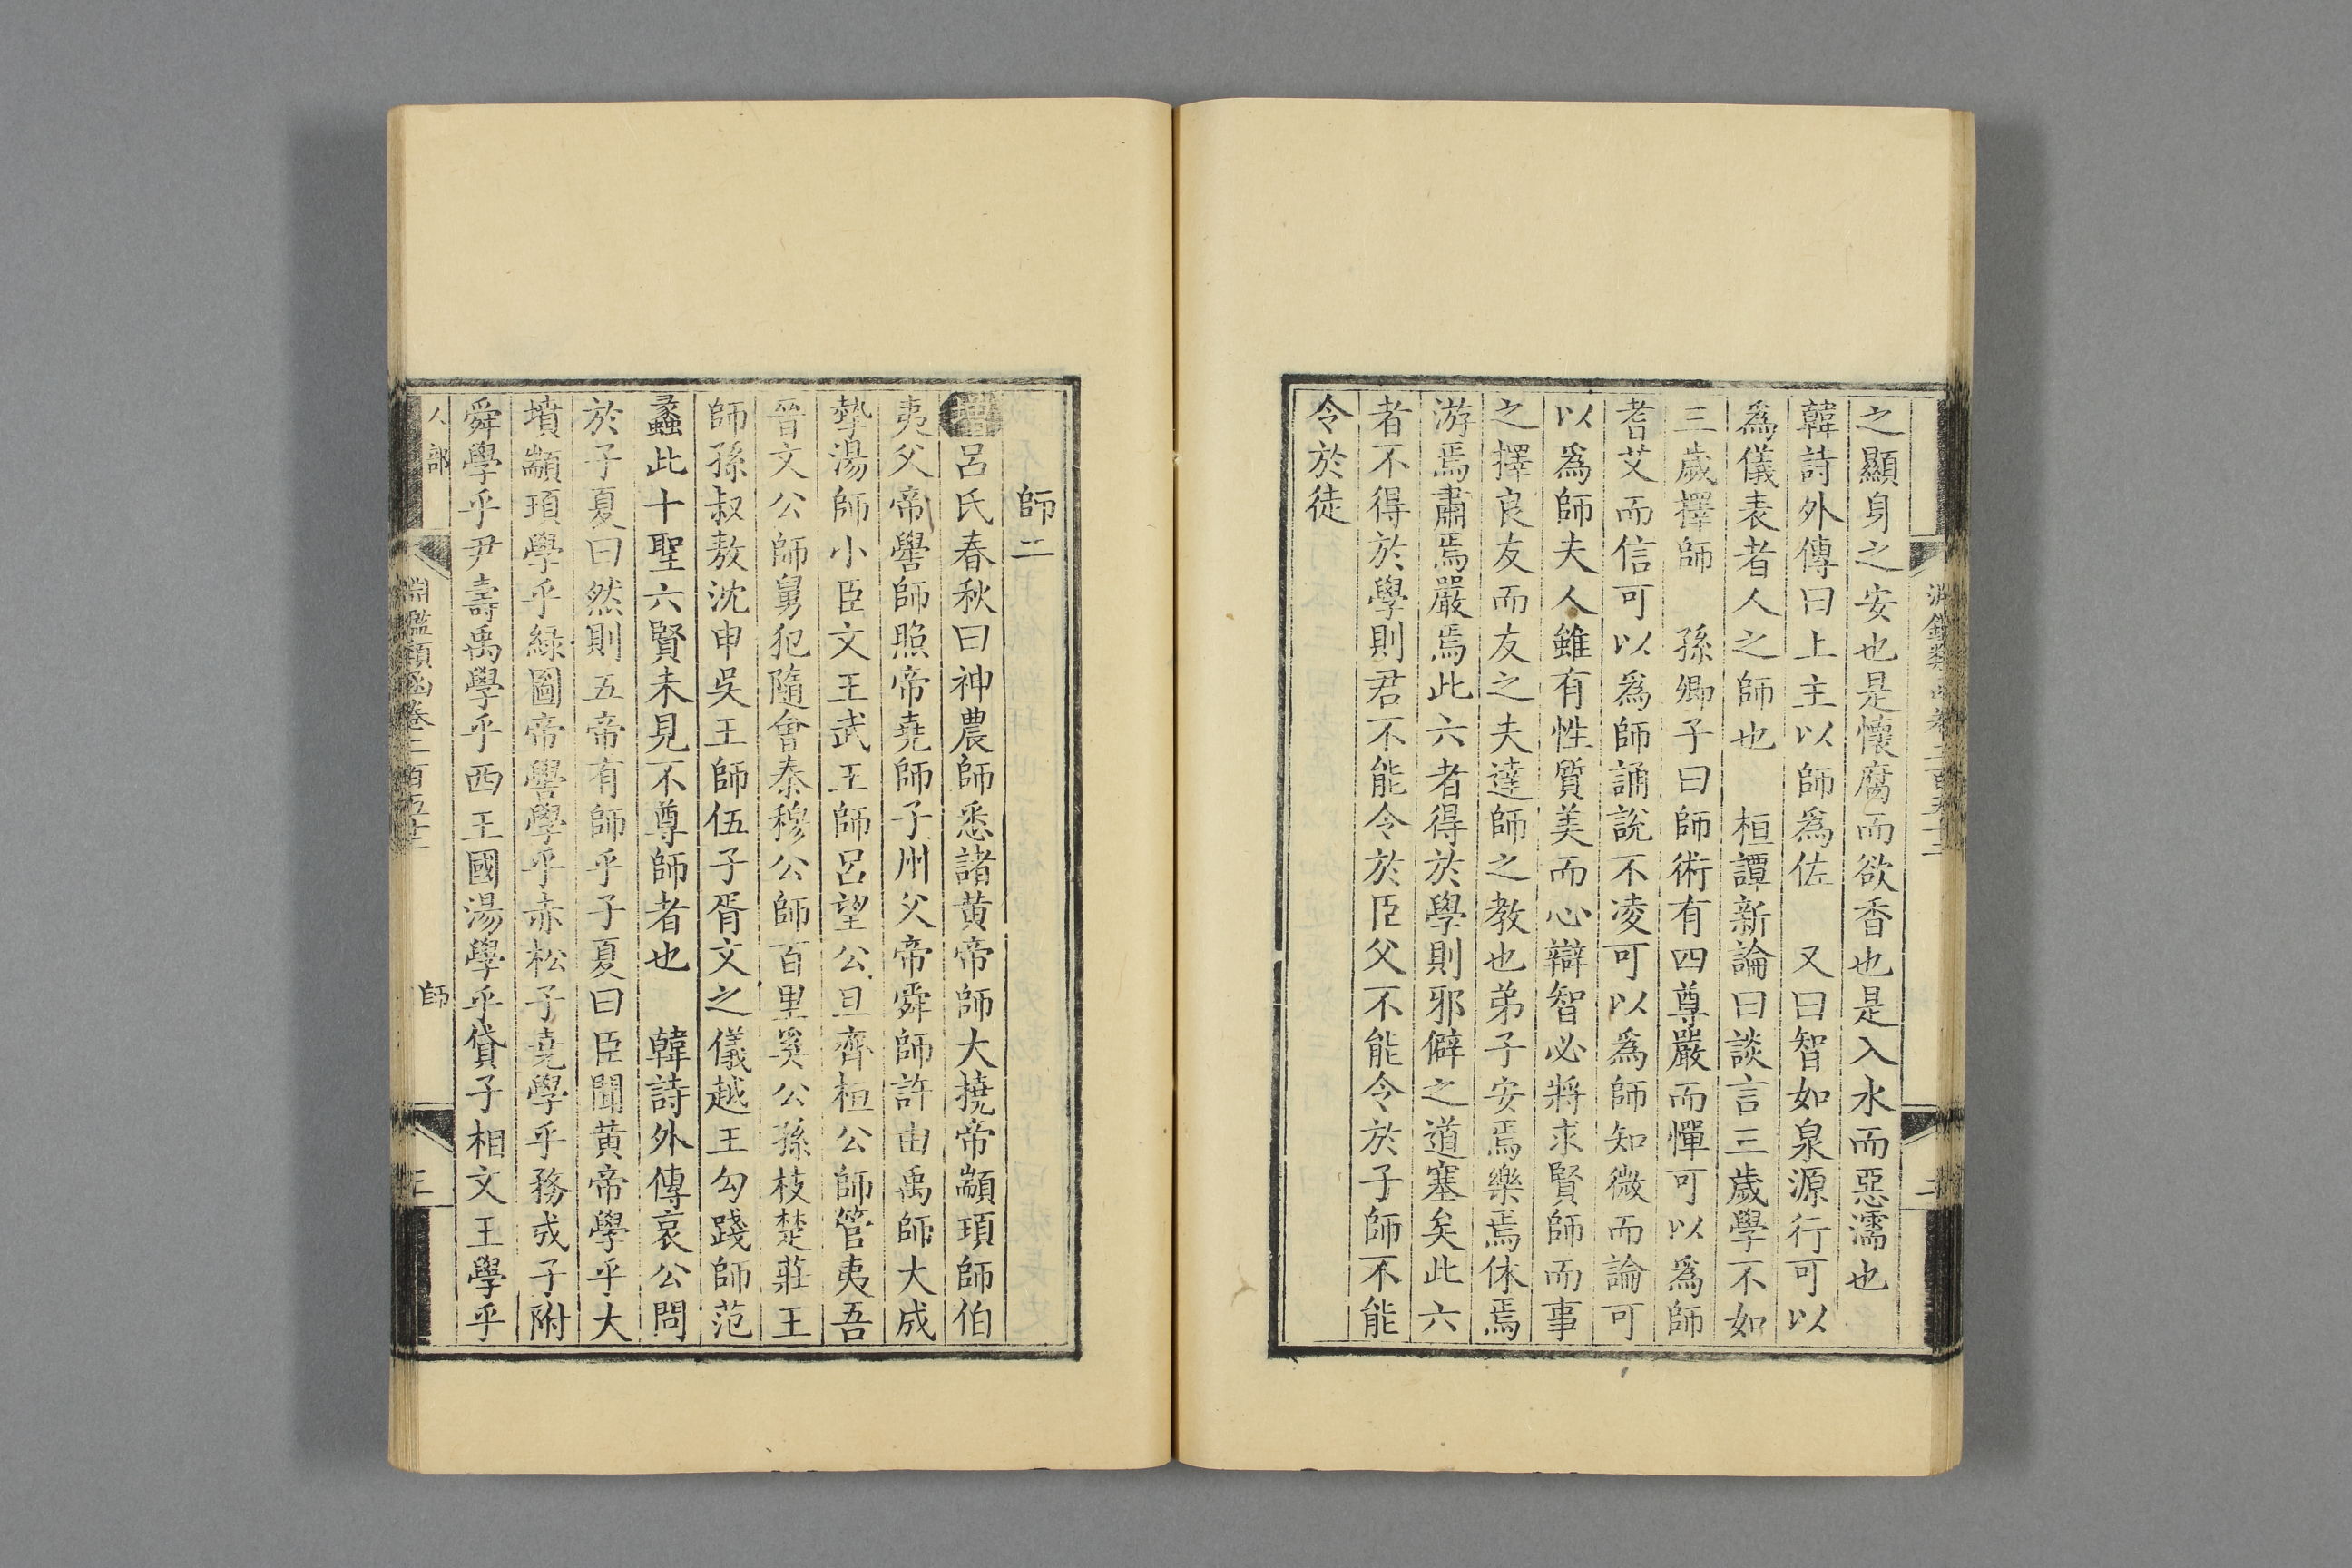 之顯身之安也是懷腐而欲香也是入水而惡濡也
韓詩外傳曰上主以師爲佐　又曰智如泉源行可以
爲儀表者人之師也　桓譚新論曰談言三歲學不如
三歲擇師　孫卿子曰師術有四尊嚴而憚可以爲師
耆艾而信可以爲師誦說不凌可以爲師知微而論可
以爲師夫人雖有性質美而心辯智必將求賢師而事
之擇良友而友之夫達師之教也弟子安焉樂焉休焉
游焉肅焉嚴焉此六者得於學則邪僻之道塞矣此六
者不得於學則君不能令於臣父不能令於子師不能
令於徒
師二
增呂氏春秋曰神農師悉諸黄帝師大撓帝顓頊師伯
夷父帝嚳師照帝堯師子州父帝舜師許由禹師大成
摯湯師小臣文王武王師呂望公旦齊桓公師管夷吾
晉文公師舅犯隨會秦穆公師百里奚公孫枝楚莊王
師孫叔敖沈申吳王師伍子胥文之儀越王勾踐師范
蠡此十聖六賢未見不尊師者也　韓詩外傳哀公問
於子夏曰然則五帝有師乎子夏曰臣聞黄帝學乎大
墳顓頊學乎綠圖帝嚳學乎赤松子堯學乎務成子附
舜學乎尹壽禹學乎西王國湯學乎貸子相文王學乎
人部
淵鑑類函卷二百五十二
師
三